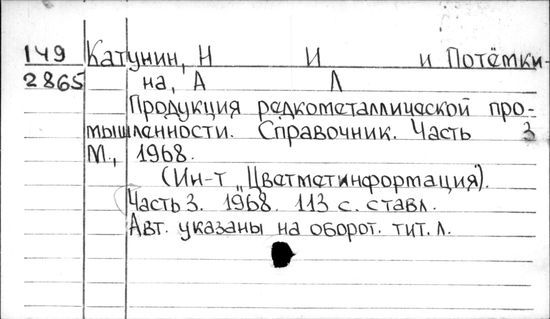 149 Катунин, Н И и Потёмки-
2865 на, А Л
Продукция редкометаллической про-
мышленности. Справочник. Часть 3
М., 1968.
(Ин-т „Цветметинформация).
Часть 3. 1968. 113 с. ставл.
Авт. указаны на оборот. тит. л.